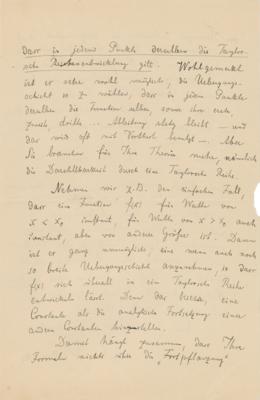 dass in jedem Punkte derselben die Taylor-
sche Reihenentwicklung gilt. Wohlgemerkt
ist er sehr wohl möglich, die Uebergangs-
schicht so zu wählen, dass in jedem Punkte
derselben die Funktion selber, sowie ihre erste,
zweite, dritte ... Ableitung stetig bleibt – und
das wird oft mit Vorteil benutzt –. Aber
Sie brauchen für Ihre Theorie mehr, nämlich
die Darstellbarkeit durch eine Taylorsche Reihe
Nehmen wir z.B. den einfachen Fall,
dass eine Funktion f(x) für Werte von
x < x₀ constant, für Werte von x > x₀ auch
constant, aber von anderer Grösse ist. Dann
ist es ganz unmöglich, eine wenn auch noch
so breite Uebergangsschicht anzunehmen, so dass
f(x) sich überall in eine Taylorsche Reihe
entwickeln lässt. Denn das hiesse, eine
Constante als die analytische Fortsetzung einer
andern Constanten hinzustellen.
Damit hängt zusammen, dass Ihre
Formeln nichts über die „Fortpflanzung"